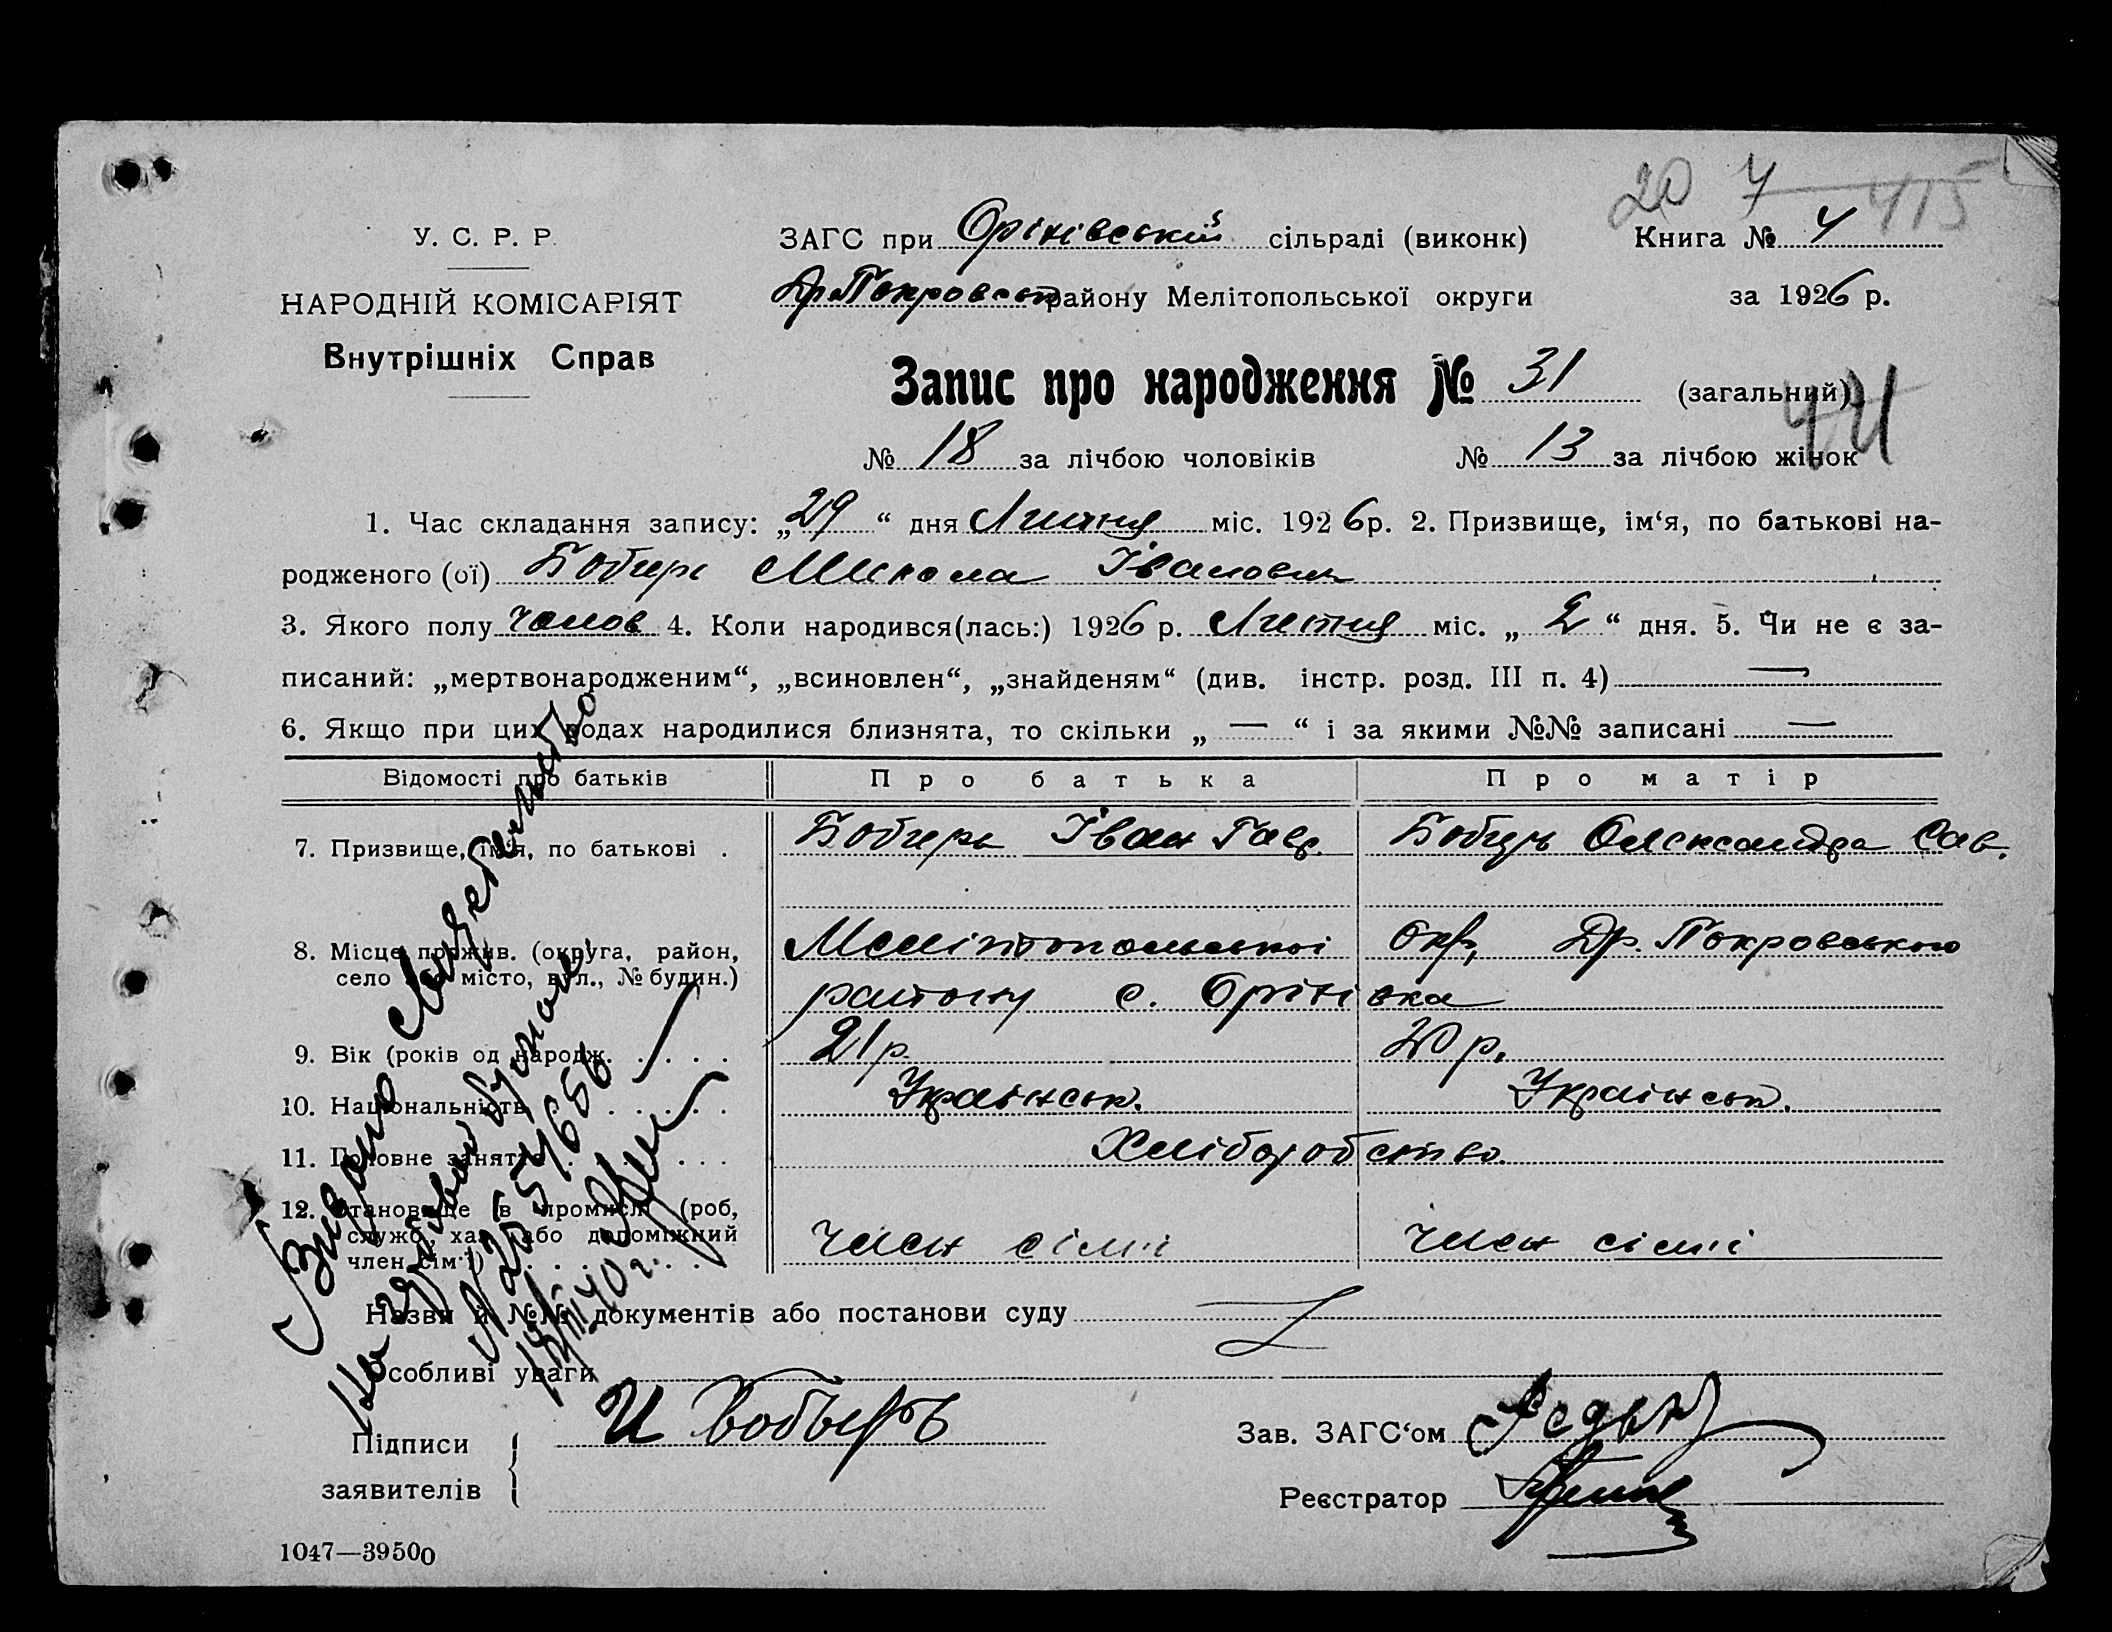 20 7 415
У. С. Р. Р.
НАРОДНІЙ КОМІСАРІЯТ
Внутрішніх Справ
ЗАГС при Орінівській сільраді (виконк) Книга № 4
Др. Покровськ району Мелітопольської округи за 1926 р.
Запис про народження № 31 (загальний)
№ 18 за лічбою чоловіків № 13 за лічбою жінок
1. Час складання запису: „29“ дня Лютня міс. 1926 р. 2. Призвище, ім‘я, по батькові на-
родженого (ої) Бобирь Микола Іванович
3. Якого полу чолов 4. Коли народився(лась:) 1926 р. Лютня міс. „2“ дня. 5. Чи не є за-
писаний: „мертвонародженим“, „всиновлен“, „знайденям“ (див. інстр. розд. III п. 4) —
6. Якщо при цих родах народилися близнята, то скільки „—“ і за якими №№ записані —
Відомості про батьків Про батька Про матір
7. Призвище, ім‘я, по батькові . Бобирь Іван Гавр. Бобирь Олександра Сав.
8. Місце прожив. (округа, район, Мелітопольської окр, Др. Покровського
село або місто, вул., № будин.) району с. Орінівка
9. Вік (років од народж. 21 р 20 р.
10. Національність Українськ. Українськ.
11. Головне заняття Хліборобство
12. Становище в промислі (роб,
службо, хаз. або допоміжний
член сім‘ї) член сімї член сімї
Назви й №№ документів або постанови суду
Особливі уваги
Підписи
заявителів
И Бобырь
Зав. ЗАГС‘ом
Реєстратор
1047—39500
Видано
№